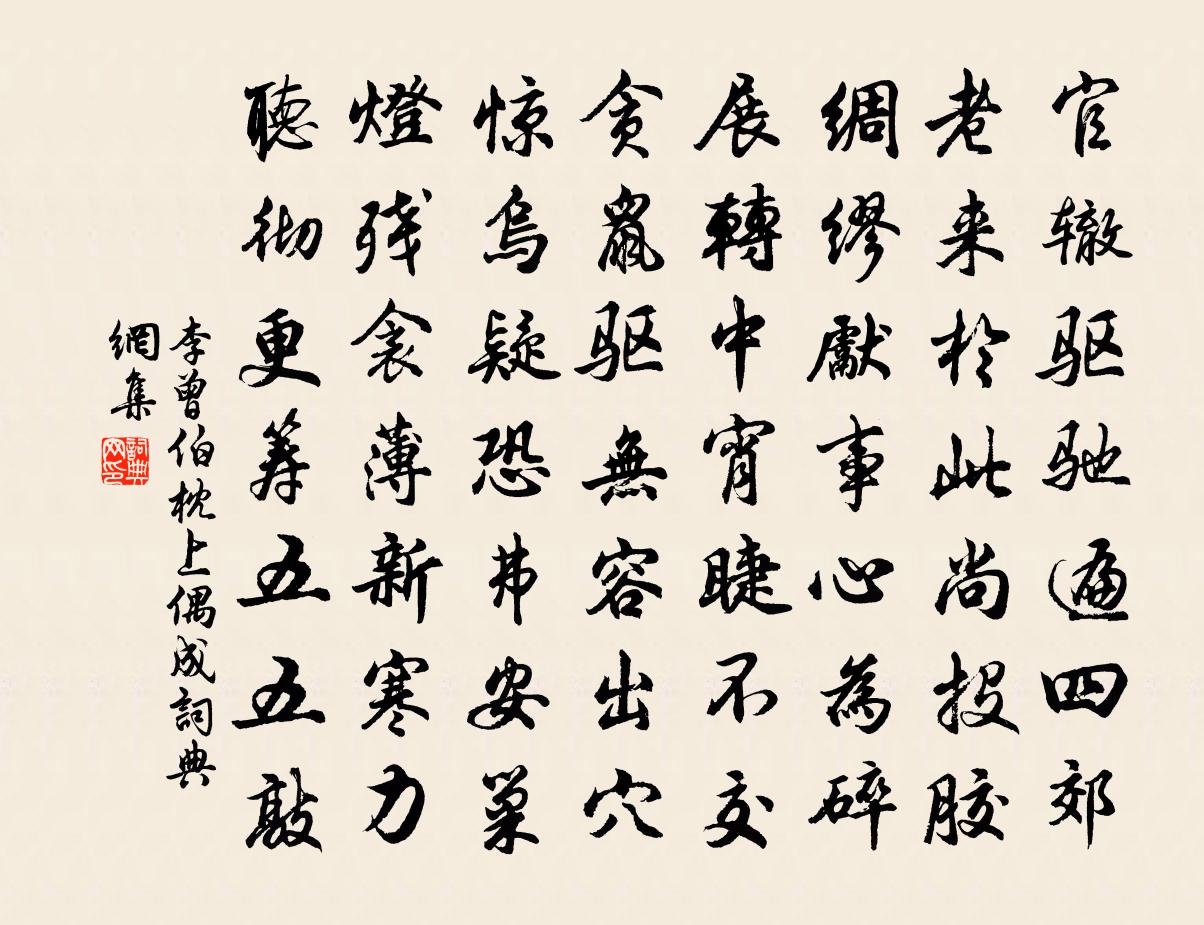 官辙驱驰遍四郊
老来於此尚投胶
綢缪獻事心為碎
展轉中宵睫不交
贪鼠驱無容出穴
惊烏疑恐弗安巢
燈残衾薄新寒力
聽彻更筹五五敲
李曾伯枕上偶成詞典
網集
詞典
网印